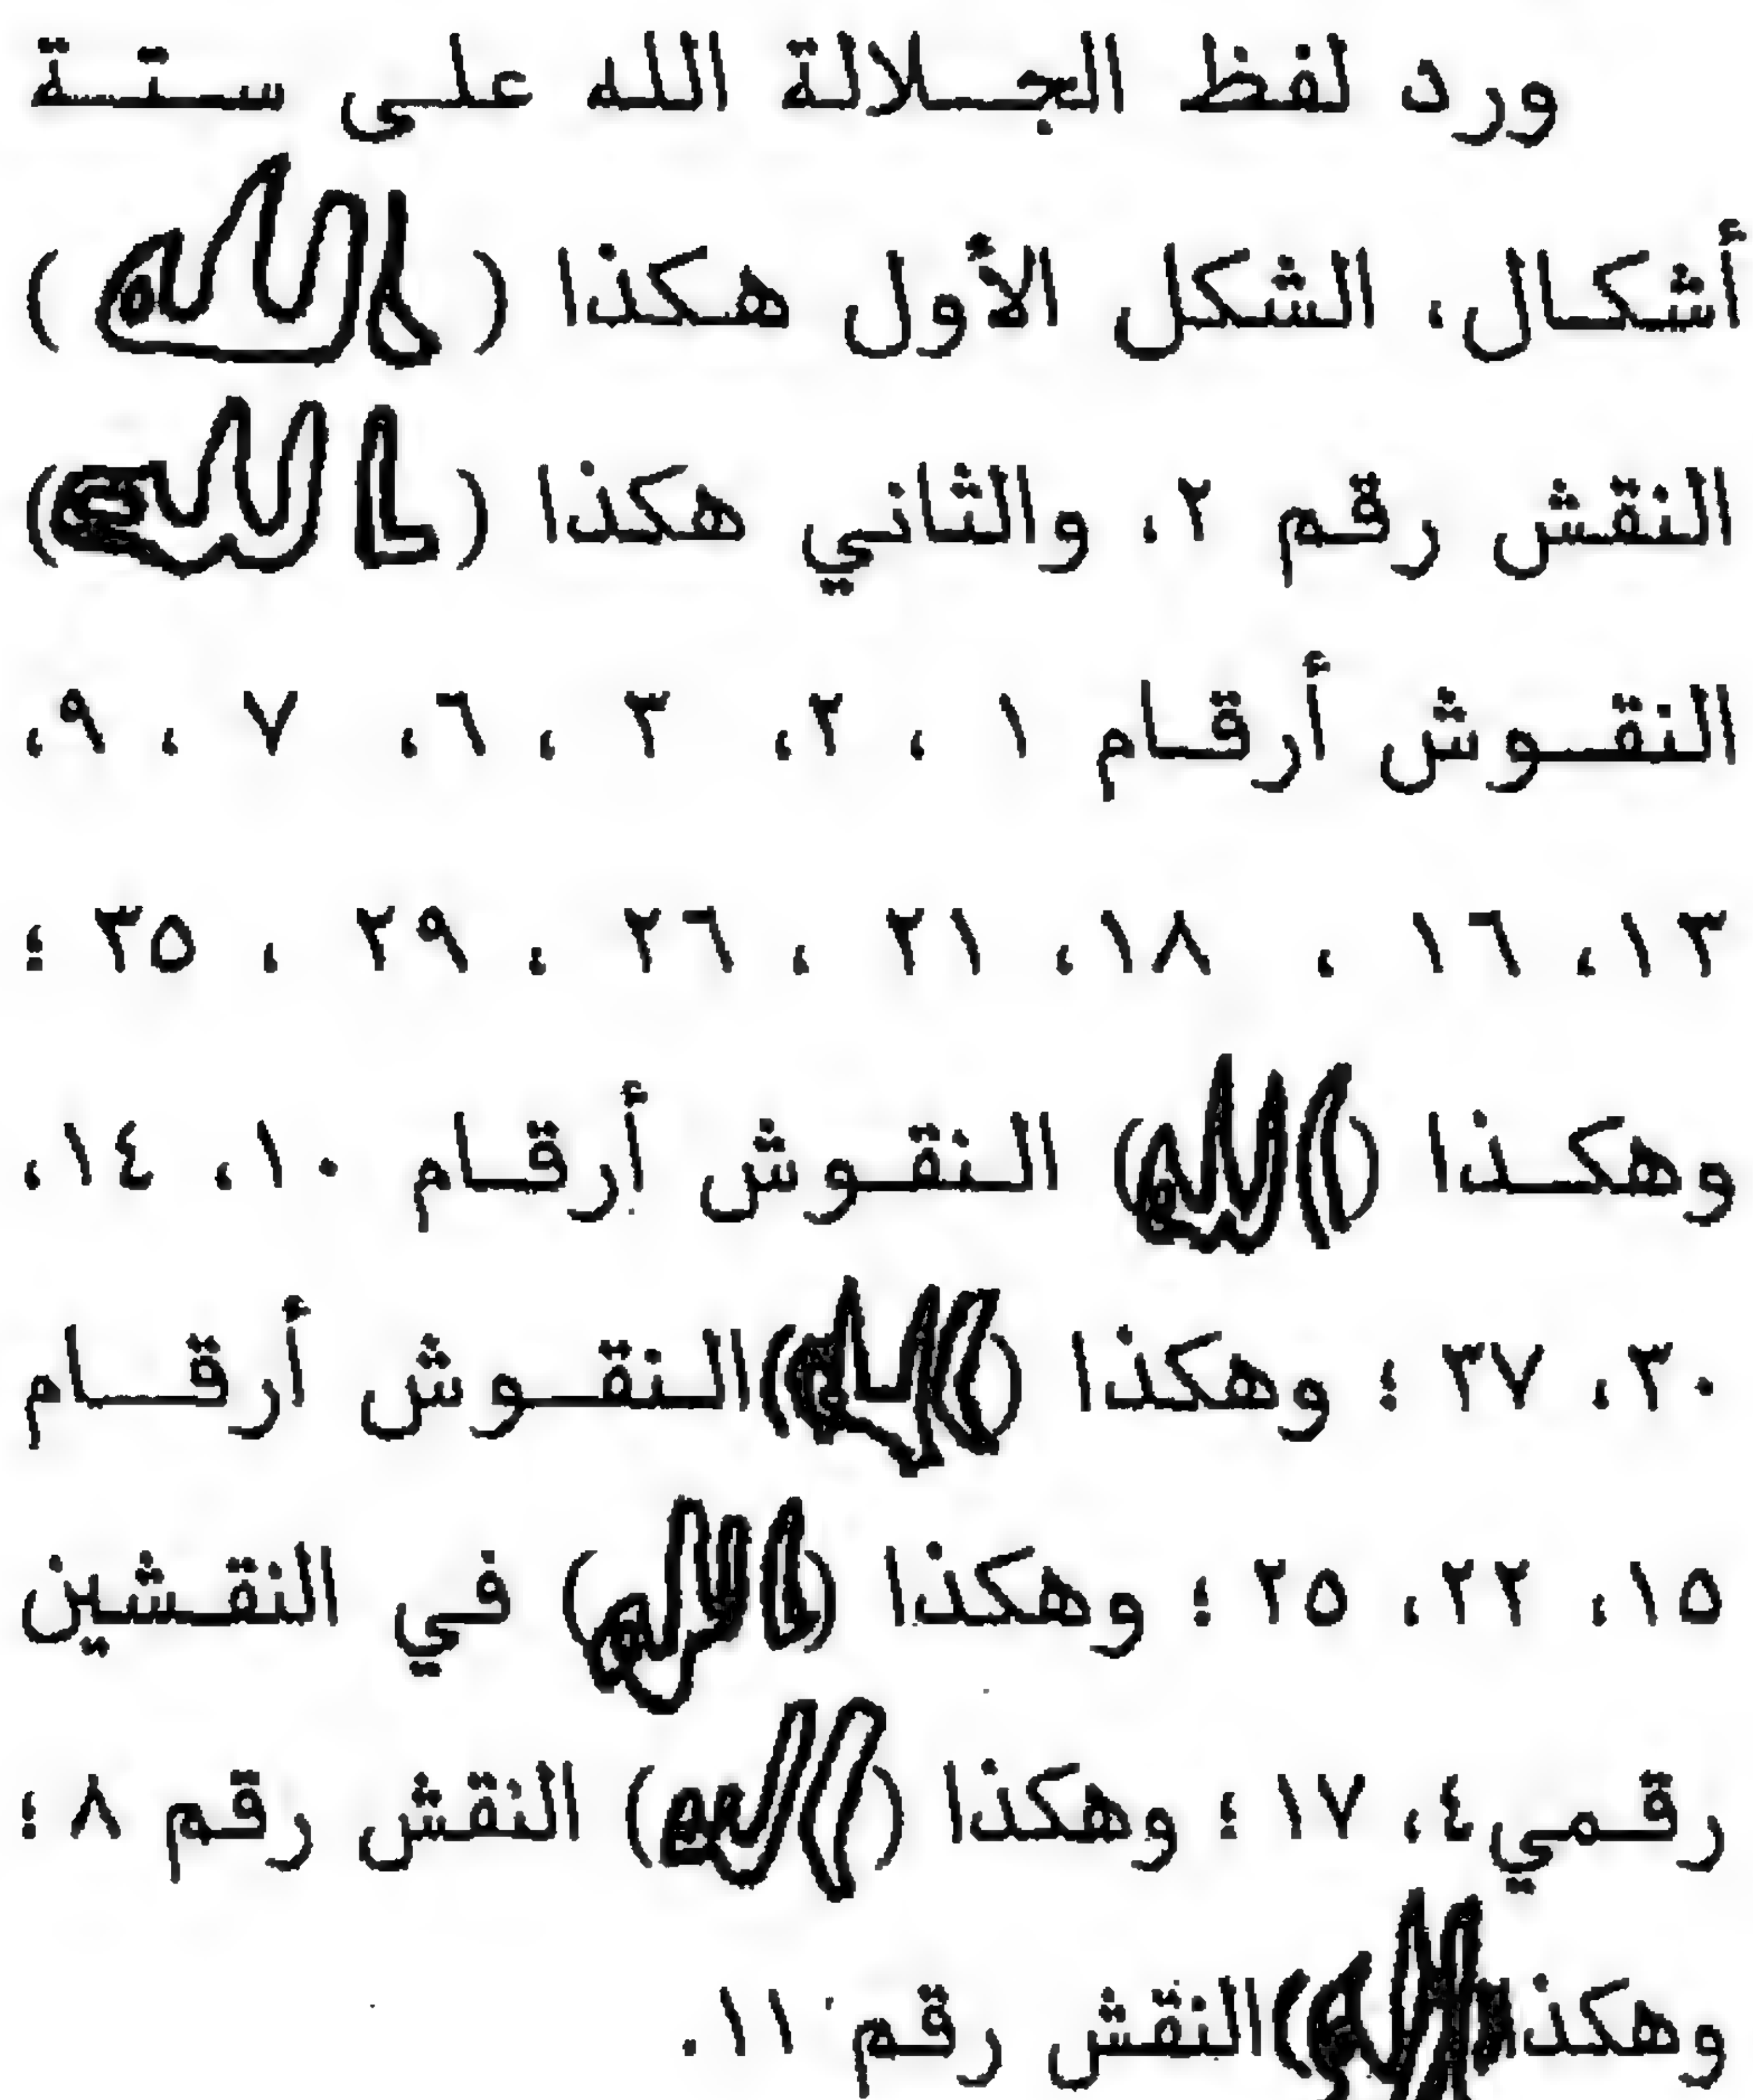 ورد لفظ الجلالة الله على ستة
أشكال، الشكل الأول هكذا (الله)
النقش رقم ٢، والثاني هكذا (الله)
النقوش أرقام ١ ، ٢، ٣ ، ٦، ٧ ، ٩،
١٣، ١٦ ، ١٨، ٢١ ، ٢٦ ، ٢٩ ، ٣٥ ؛
وهكذا (الله) النقوش أرقام ١٠، ١٤،
٣٠، ٣٧ ؛ وهكذا (الله) النقوش أرقام
١٥، ٢٢، ٢٥ ؛ وهكذا (الله) في النقشين
رقمي٤، ١٧ ؛ وهكذا (الله) النقش رقم ٨ ؛
وهكذا (الله) النقش رقم ١١.